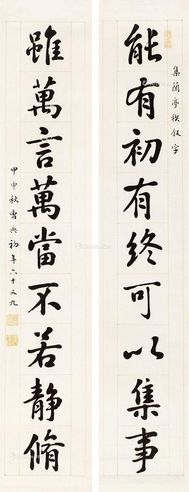 集蘭亭禊敘字
能有初有終可以集事
雖萬言萬當不若靜脩
甲申秋曹典初年六十又九